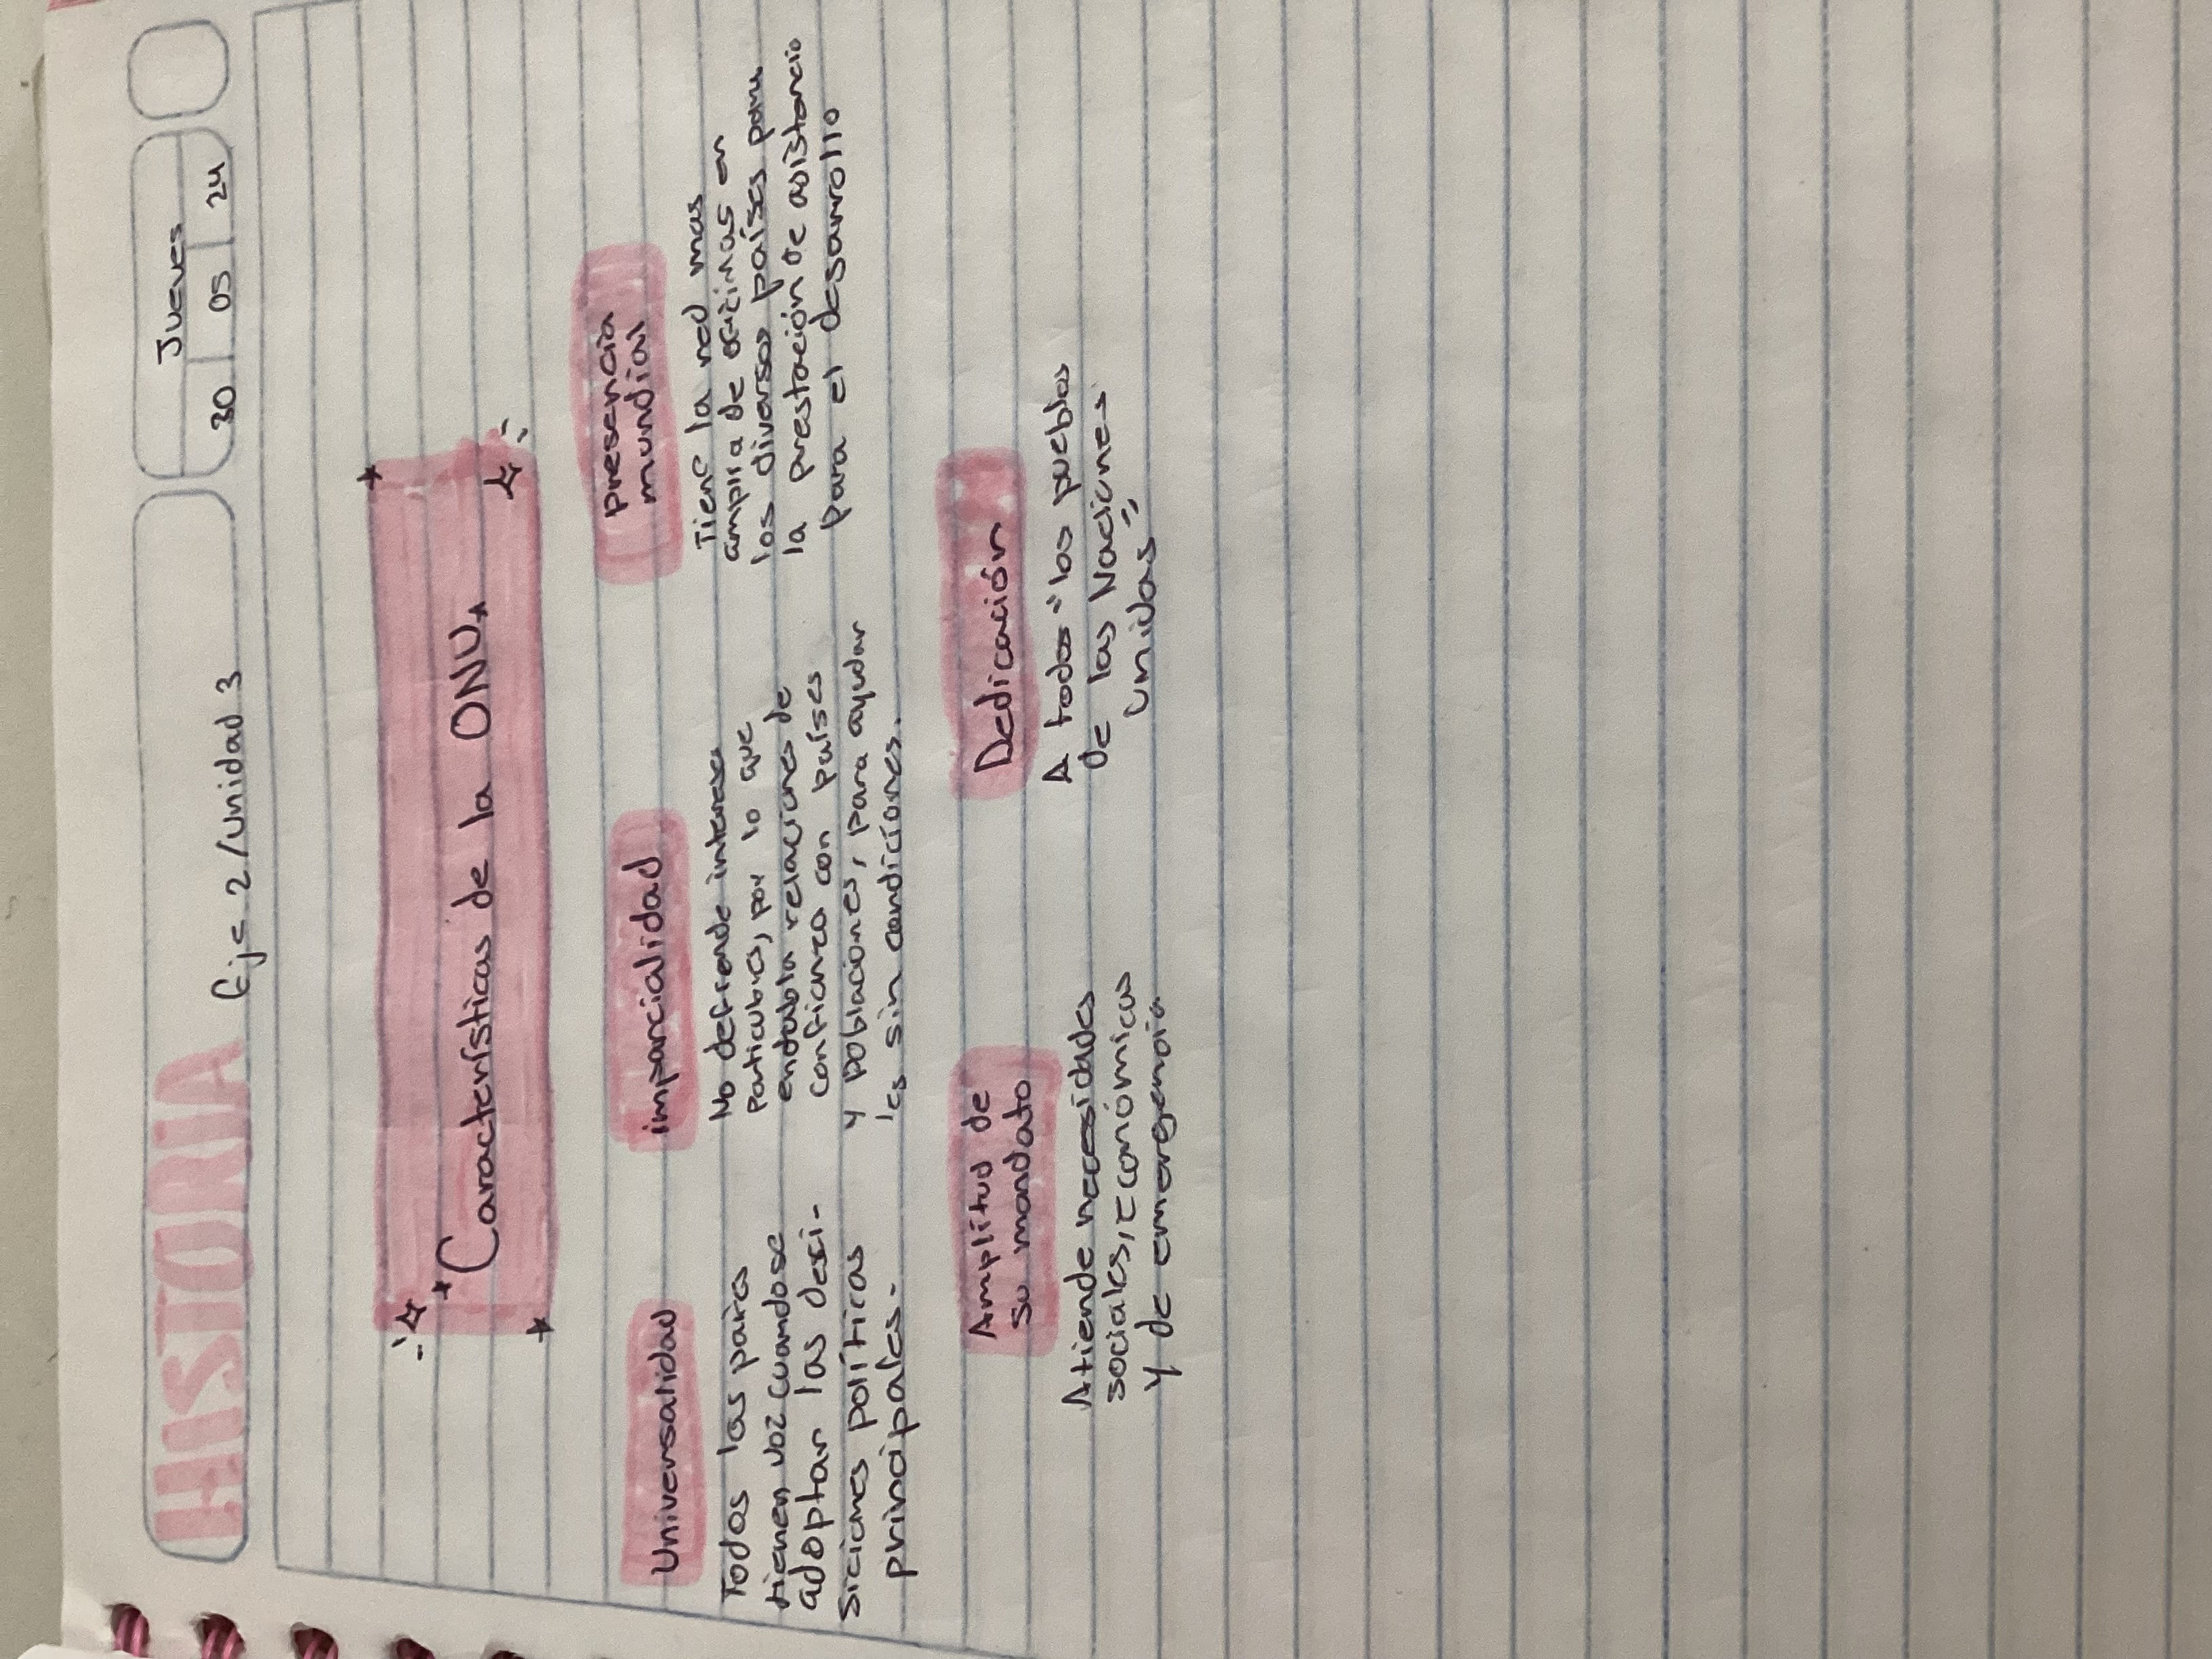 HISTORIA
Jueves
30 05 24
Eje 2/Unidad 3
Características de la ONU
Universalidad
Todos los países
tienen voz cuando se
adoptar las deci-
siciones políticas
principales.
imparcialidad
No defiende intereses
particulares, por lo que
entabla relaciones de
confianza con países
y poblaciones, para ayudar
les sin condiciones.
presencia
mundial
Tiene la red mas
amplia de oficinas en
los diversos países para
la prestación de asistencia
para el desarrollo
Amplitud de
su mandato
Atiende necesidades
sociales, económicas
y de emergencia
Dedicación
A todos "los pueblos
de las Naciones
Unidas"